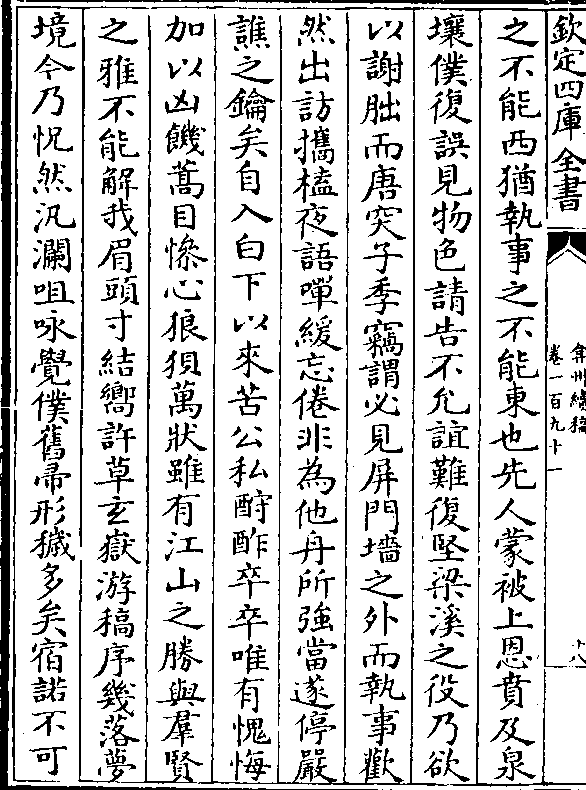 欽定四庫全書
弇州續稿
卷一百九十一
十八
之不能西猶執事之不能東也先人蒙被上恩賁及泉
壤僕復誤見物色請告不允誼難復堅梁溪之役乃欲
以謝朏而唐突子季竊謂必見屏門墻之外而執事歡
然出訪攜榼夜語嘽緩忘倦非為他舟所強當遂停嚴
譙之鑰矣自入白下以來苦公私酧酢卒卒唯有愧悔
加以凶饑蒿目慘心狼狽萬狀雖有江山之勝與羣賢
之雅不能解我眉頭寸結嚮許草玄嶽游稿序幾落夢
境今乃怳然汎瀾咀咏覺僕舊帚形穢多矣宿諾不可